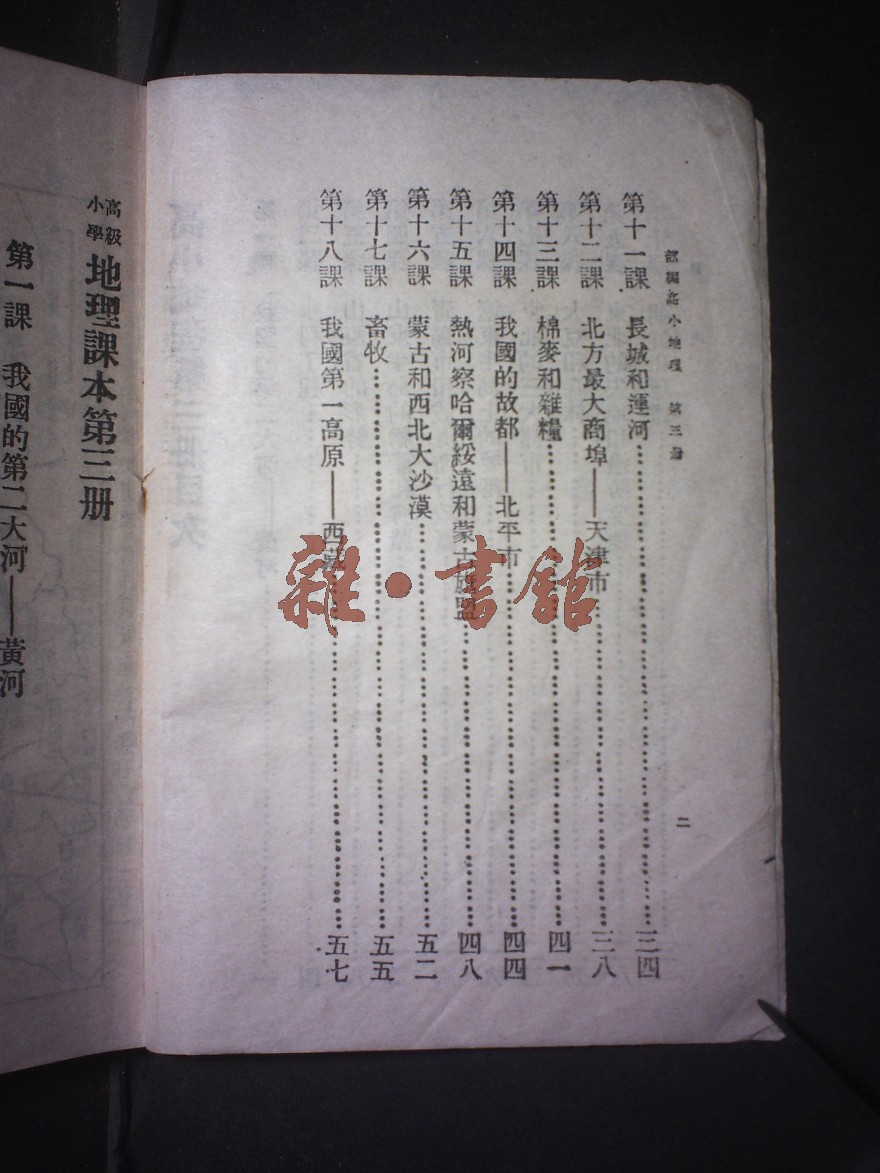 部編高小地理 第三册
二
第十一課 長城和運河 三四
第十二課 北方最大商埠——天津市 三八
第十三課 棉麥和雜糧 四一
第十四課 我國的故都——北平市 四四
第十五課 熱河察哈爾綏遠和蒙古旗盟 四八
第十六課 蒙古和西北大沙漠 五二
第十七課 畜牧 五五
第十八課 我國第一高原——西藏 五七
高級小學 地理課本第三册
第一課 我國的第二大河——黃河
雜·書館